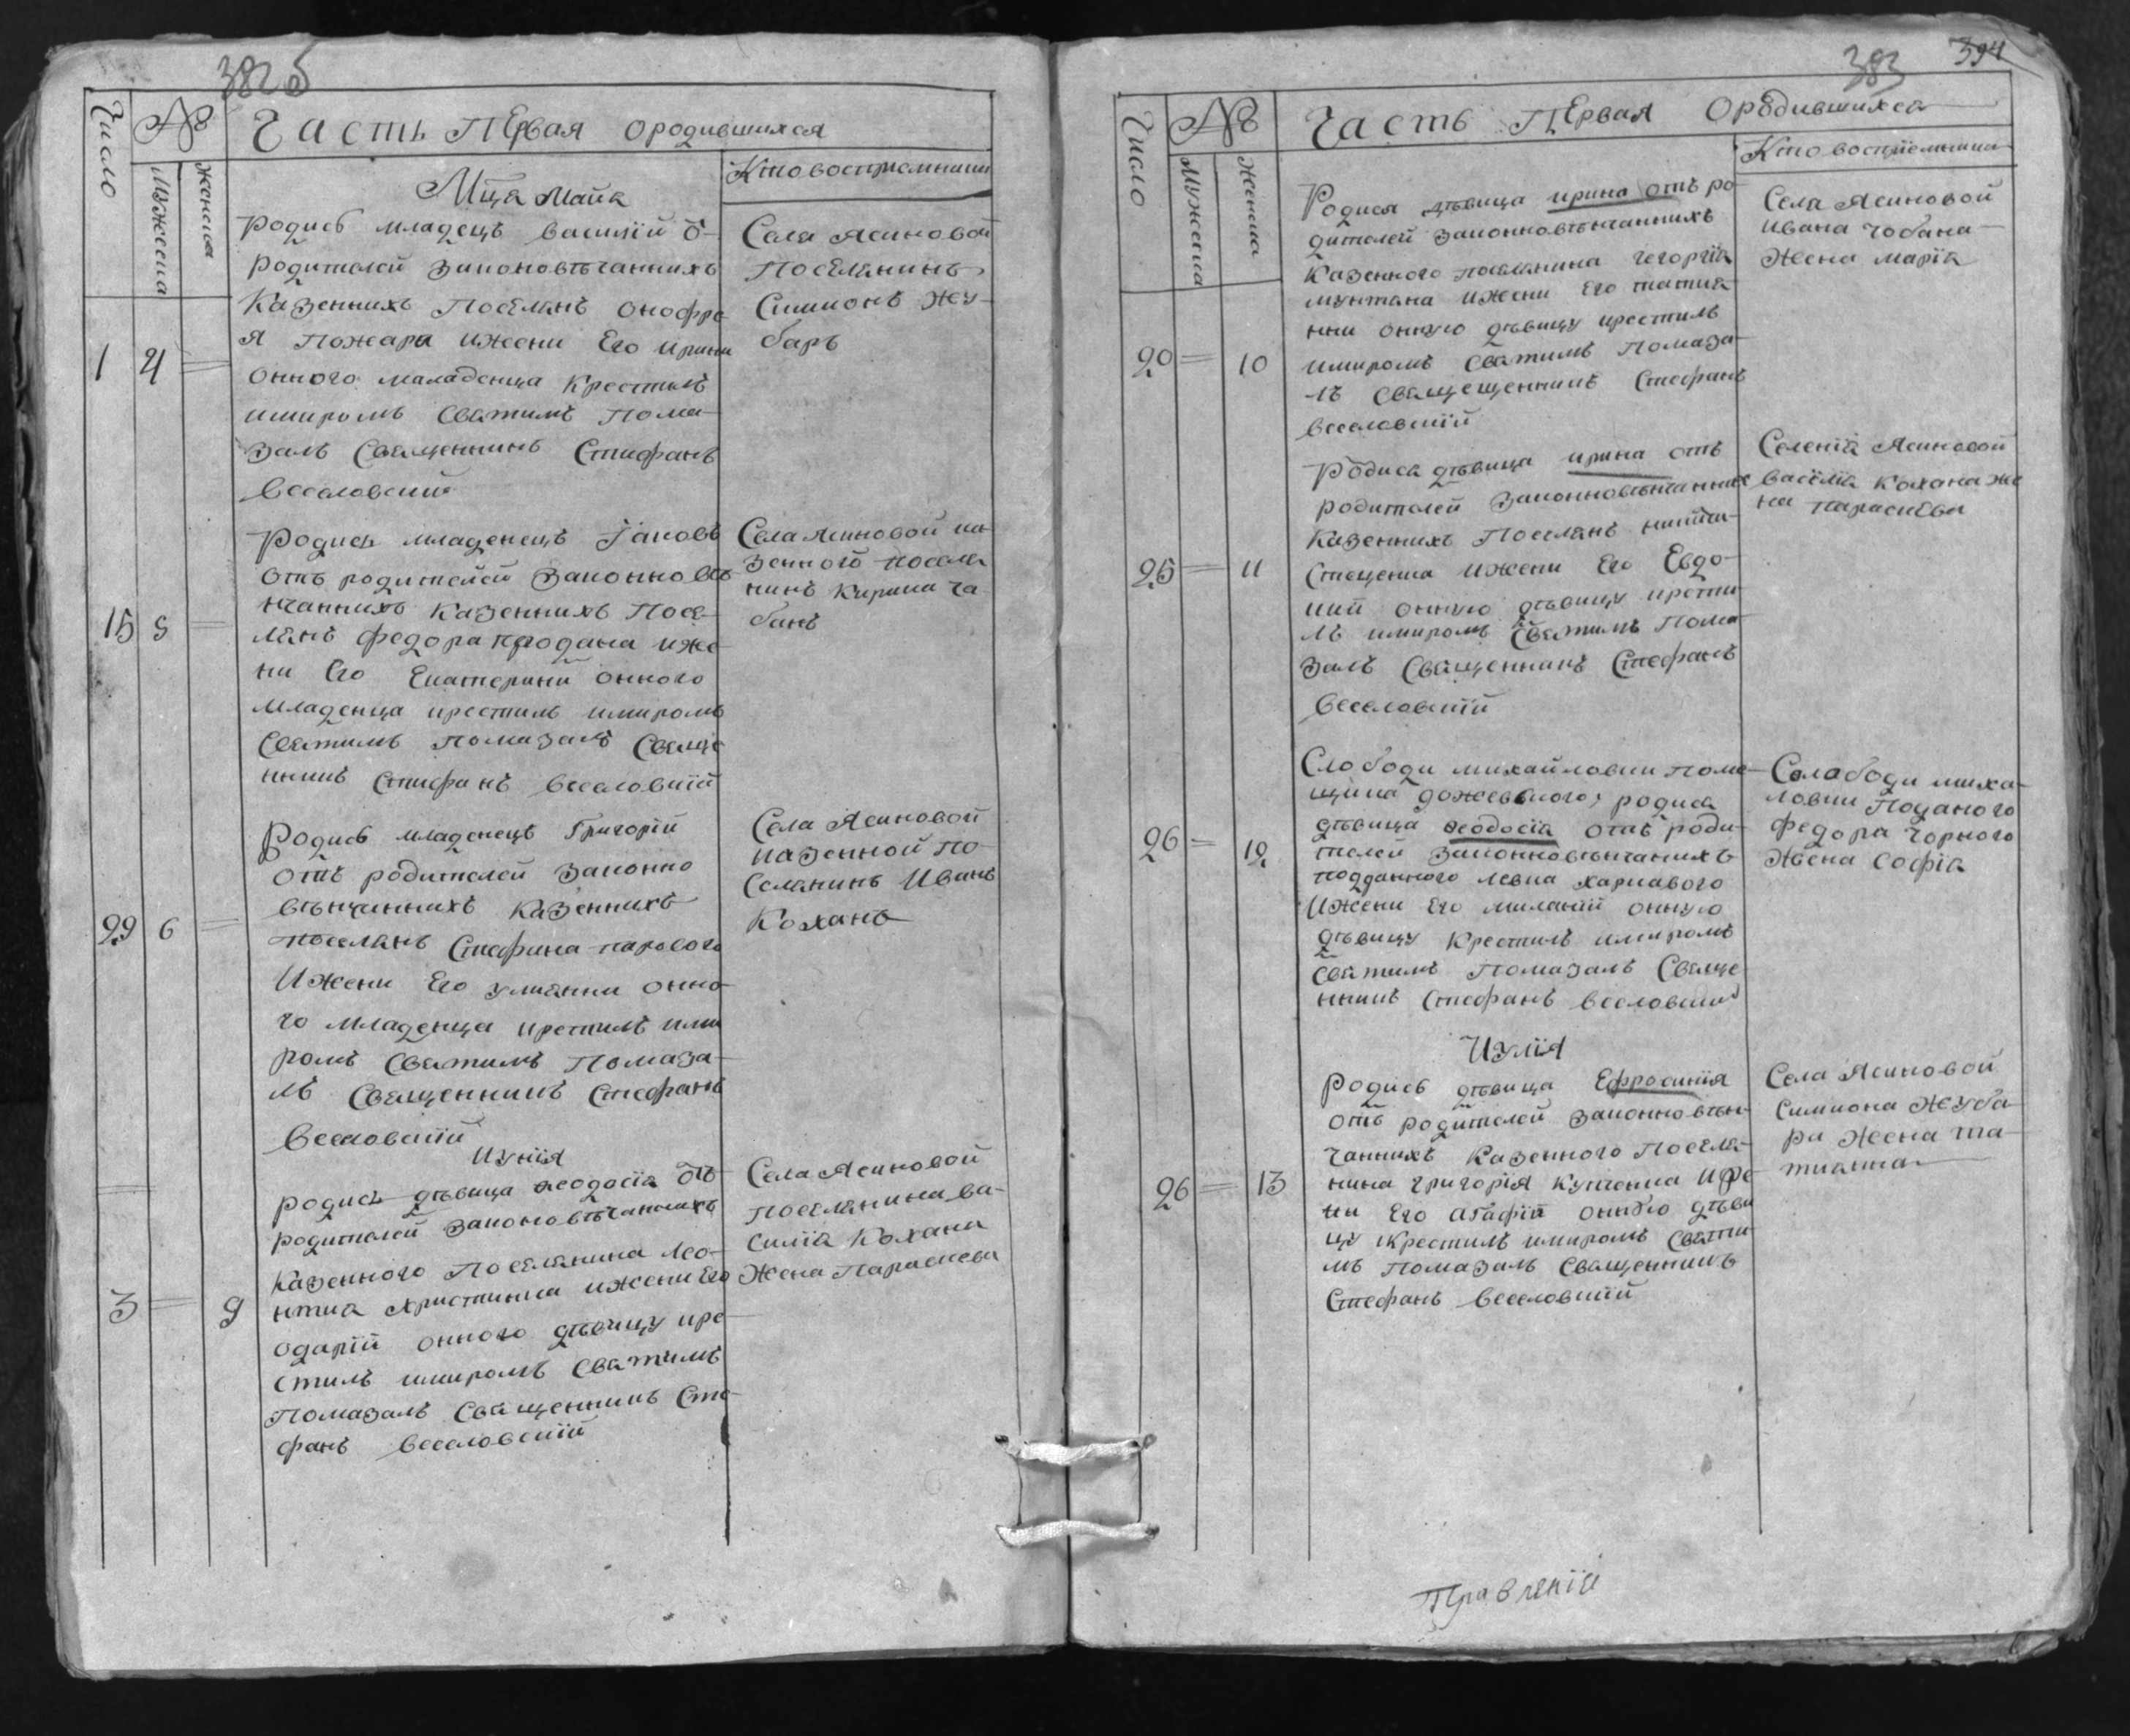 382 б
Число
№
Мужеска
Женска
Часть ПЕрвая ородившихся
Кто восприемники
Мца Майя
Родись младецъ василий ѿ
родителей Законовѣчаннихъ
Казеннихъ Поселянъ Онофре
я Пожара ижени Его ирини
Онного маладенца Крестилъ
имиромъ Святимъ Пома
залъ Священникъ Стефанъ
Веселовский
1 4
Села Ясиновой
Поселянинъ
Симионъ Жу
баръ
Родись младенецъ Іаковъ
отъ родителей Законно вѣ
нчаннихъ Казеннихъ Посе
лянъ федора продана иже
ни Его Екатерини онного
младенца крестилъ имиромъ
Святимъ Помазалъ Свяще
нникъ Стефанъ Веселовскій
15 5
Села Ясиновой ка
зенного посела
нинъ Кирила ча
банъ
Родись младенецъ Григорій
Отъ родителей Законно
вѣнчаннихъ Казеннихъ
поселянъ Стефана парового
Ижени Его улиянни онно
го младенца крестилъ ими
ромъ Святимъ Помаза
лъ Священникъ Стефанъ
Веселовскій
29 6
Села Ясиновой
казенной по
селянинъ Иванъ
Коханъ
Иунія
родись дѣвица Ѳеодосія ѿ
родителей Законовѣчаннихъ
Казенного Поселянина Лео
нтия христинка ижени Его
одарій онного дѣвицу кре
стилъ имиромъ Святимъ
Помазалъ Священникъ Сте
фанъ Веселовскій
3 9
Села Ясиновой
поселянина ва
силія Кохани
Жена Параскева
383 394
Число
№
Мужеска
Женска
Часть ПЕрвая Ородившихся
Кто восприемники
Родися дѣвица ирина отъ ро
дителей Законновѣнчаннихъ
Казенного поселянина георгія
мунтяна ижени Его татия
нии онную дѣвицу крестилъ
имиромъ Святимъ Помаза
лъ Свящещенникъ Стефанъ
веселовскій
20 10
Села Ясиновой
ивана чобана
Жена Марія
Родися дѣвица ирина отъ
родителей Законновѣнчанних
Казеннихъ Поселянъ никити
Стеценка ижени Его Евдо
кий онную дѣвицу крести
лъ имиромъ Святимъ Пома
залъ Священникъ Стефанъ
веселовскій
25 11
Селенія Ясиновой
василія Кохана же
на параскЕва
Слободи михайловки поме
щика родись
дѣвица Ѳеодосія отъ роди
телей Законновѣнчанихъ
подданного левка харкавого
Ижени Его миланій онную
дѣвицу Крестилъ имиромъ
Святимъ Помазалъ Свяще
нникъ Стефанъ веселовский
26 12
Салабоди миха
ловки Поданого
федора Чорного
Жена Софія
Иулія
Родись дѣвица Ефросинія
отъ родителей Законновѣн
чаннихъ Казенного Поселя
нина григорія Купченка иже
ни Его агафій онную дѣви
цу крестилъ имиромъ Святи
мъ Помазалъ Священникъ
Стефанъ Веселовскій
26 13
Села Ясиновой
Симиона Жуба
ри Жена та
тиянна
Правленія